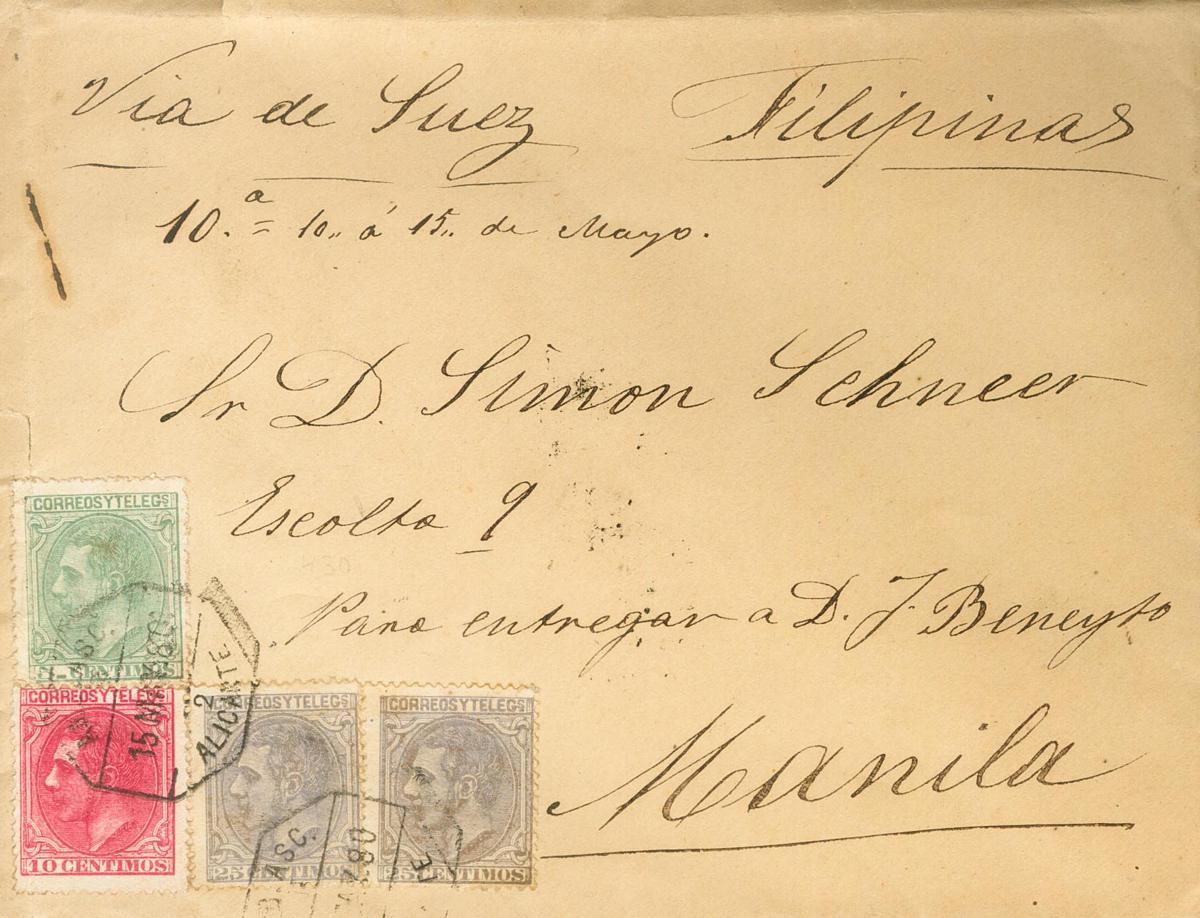 Via de Suez Filipinas
10.ª = 10,, á 15,, de Mayo.
Sr D. Simon Schneer
Escolta 9
Para entregar a D. J. Beneyto
Manila
CORREOS Y TELEGS
CENTIMOS
CORREOS Y TELEGS
10 CENTIMOS
CORREOS Y TELEGS
25 CENTIMOS
CORREOS Y TELEGS
25 CENTIMOS
15
80
2
ALICANTE
ASC.
80